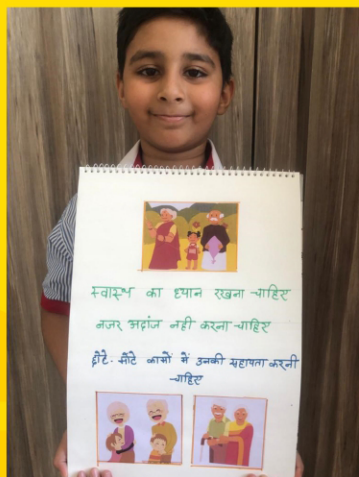 स्वास्थ्य का ध्यान रखना चाहिए
नजर अदांज नही करना चाहिए
छोटे- मोटे कामो में उनकी सहायता करनी
चाहिए